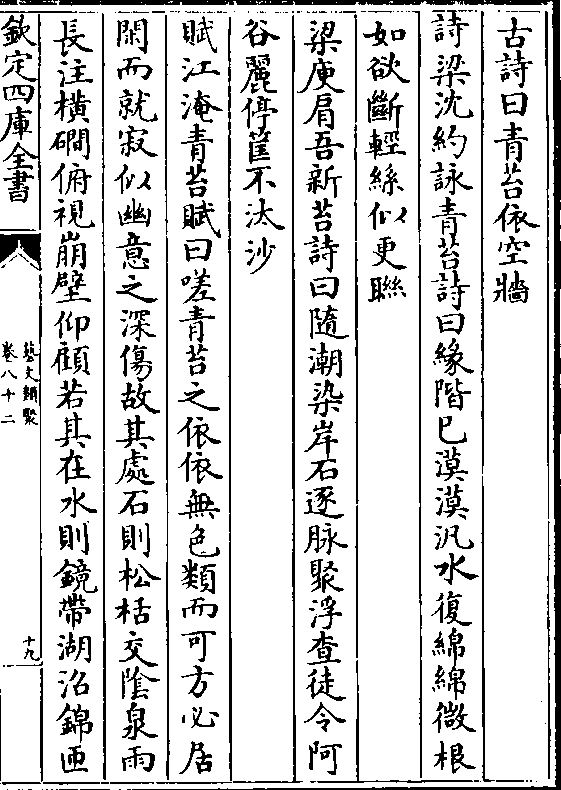 古詩曰青苔依空牆
詩梁沈約詠青苔詩曰緣階已漠漠汎水復綿綿微根
如欲斷輕絲似更聯
梁庾肩吾新苔詩曰隨潮染岸石逐脉聚浮查徒令阿
谷麗停筐不汰沙
賦江淹青苔賦曰嗟青苔之依依無色類而可方必居
閑而就寂似幽意之深傷故其處石則松栝交陰泉雨
長注橫磵俯視崩壁仰顧若其在水則鏡帶湖沼錦匝
欽定四庫全書
藝文類聚
卷八十二
十九